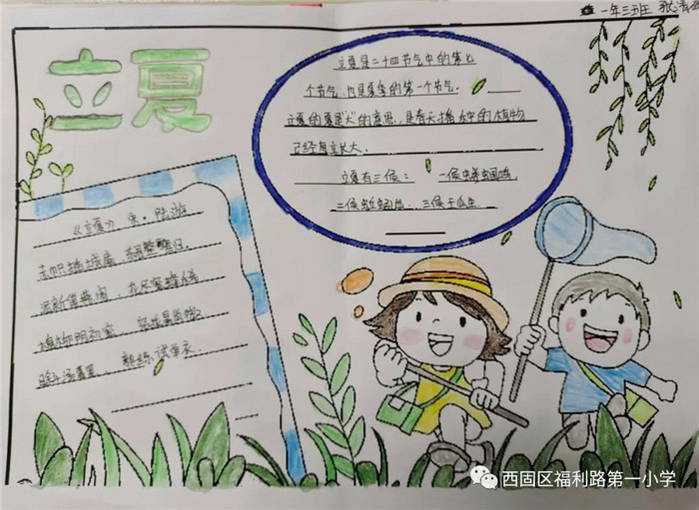 一年三班
立夏
立夏是二十四节气中的第七
个节气,也是夏季的第一个节气。
立夏的"夏"是"大"的意思,是春天播种的植物
已经直立长大。
立夏有三候: 一候
二候蚯蚓出, 三候王瓜生
《立夏》 宋·陆游
赤帜插城扉,东君整驾归。
泥新巢燕闹,花尽蜜蜂稀
槐柳阴初密, 帘栊暑尚微
日斜汤沐罢, 熟练试单衣
西固区福利路第一小学